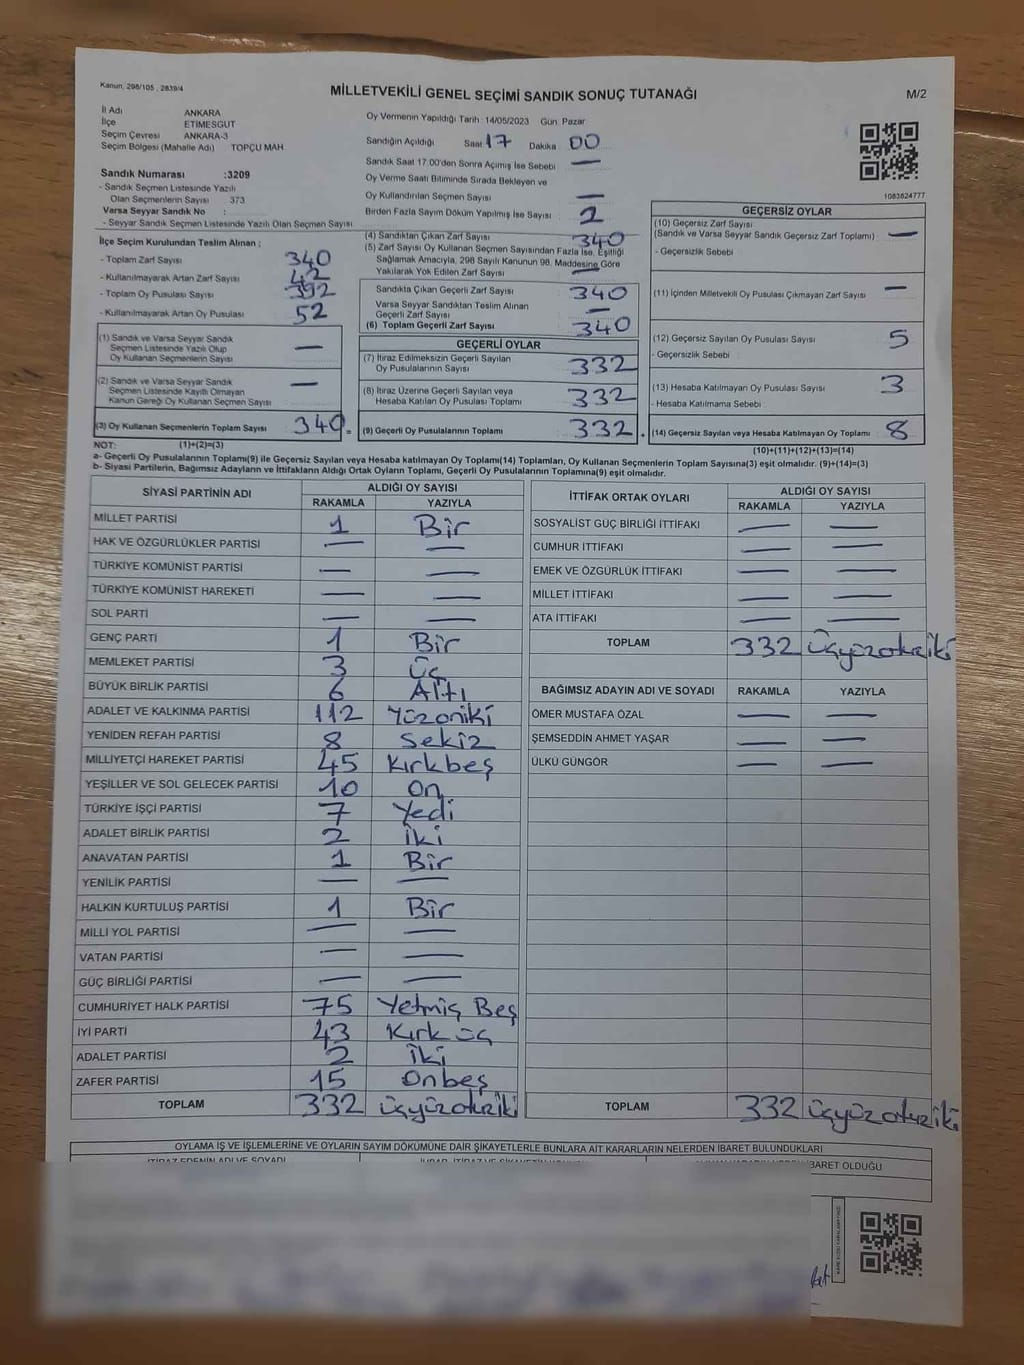 Kanun, 298/105 , 2839/4
MİLLETVEKİLİ GENEL SEÇİMİ SANDIK SONUÇ TUTANAĞI
M/2
İl Adı ANKARA
İlçe ETİMESGUT
Seçim Çevresi ANKARA-3
Seçim Bölgesi (Mahalle Adı) TOPÇU MAH
Sandık Numarası :3209
- Sandık Seçmen Listesinde Yazılı
Olan Seçmenlerin Sayısı 373
Varsa Seyyar Sandık No :
- Seyyar Sandık Seçmen Listesinde Yazılı Olan Seçmen Sayısı
Oy Vermenin Yapıldığı Tarih :14/05/2023 Gün: Pazar
Sandığın Açıldığı Saat 17 Dakika 00
Sandık Saat 17.00'den Sonra Açılmış İse Sebebi —
Oy Verme Saati Bitiminde Sırada Bekleyen ve
Oy Kullandırılan Seçmen Sayısı —
Birden Fazla Sayım Döküm Yapılmış İse Sayısı 2
1083824777
İlçe Seçim Kurulundan Teslim Alınan ;
- Toplam Zarf Sayısı 340
- Kullanılmayarak Artan Zarf Sayısı 42
- Toplam Oy Pusulası Sayısı 392
- Kullanılmayarak Artan Oy Pusulası 52
(1) Sandık ve Varsa Seyyar Sandık
Seçmen Listesinde Yazılı Olup
Oy Kullanan Seçmenlerin Sayısı —
(2) Sandık ve Varsa Seyyar Sandık
Seçmen Listesinde Kayıtlı Olmayan
Kanun Gereği Oy Kullanan Seçmen Sayısı —
(3) Oy Kullanan Seçmenlerin Toplam Sayısı 340
(4) Sandıktan Çıkan Zarf Sayısı 340
(5) Zarf Sayısı Oy Kullanan Seçmen Sayısından Fazla İse, Eşitliği
Sağlamak Amacıyla, 298 Sayılı Kanunun 98. Maddesine Göre
Yakılarak Yok Edilen Zarf Sayısı —
Sandıkta Çıkan Geçerli Zarf Sayısı 340
Varsa Seyyar Sandıktan Teslim Alınan
Geçerli Zarf Sayısı —
(6) Toplam Geçerli Zarf Sayısı 340
GEÇERLİ OYLAR
(7) İtiraz Edilmeksizin Geçerli Sayılan
Oy Pusulalarının Sayısı 332
(8) İtiraz Üzerine Geçerli Sayılan veya
Hesaba Katılan Oy Pusulası Toplamı 332
(9) Geçerli Oy Pusulalarının Toplamı 332
GEÇERSİZ OYLAR
(10) Geçersiz Zarf Sayısı
(Sandık ve Varsa Seyyar Sandık Geçersiz Zarf Toplamı) —
- Geçersizlik Sebebi
(11) İçinden Milletvekili Oy Pusulası Çıkmayan Zarf Sayısı —
(12) Geçersiz Sayılan Oy Pusulası Sayısı 5
- Geçersizlik Sebebi
(13) Hesaba Katılmayan Oy Pusulası Sayısı 3
- Hesaba Katılmama Sebebi
(14) Geçersiz Sayılan veya Hesaba Katılmayan Oy Toplamı 8
NOT: (1)+(2)=(3)
(10)+(11)+(12)+(13)=(14)
a- Geçerli Oy Pusulalarının Toplamı(9) ile Geçersiz Sayılan veya Hesaba Katılmayan Oy Pusulası Toplamı(14) Toplamları, Oy Kullanan Seçmenlerin Toplam Sayısına(3) eşit olmalıdır. (9)+(14)=(3)
b- Siyasi Partilerin, Bağımsız Adayların ve İttifakların Aldığı Ortak Oyların Toplamı, Geçerli Oy Pusulalarının Toplamına(9) eşit olmalıdır.
SİYASİ PARTİNİN ADI ALDIĞI OY SAYISI
RAKAMLA YAZIYLA
MİLLET PARTİSİ 1 Bir
HAK VE ÖZGÜRLÜKLER PARTİSİ — —
TÜRKİYE KOMÜNİST PARTİSİ — —
TÜRKİYE KOMÜNİST HAREKETİ — —
SOL PARTİ — —
GENÇ PARTİ 1 Bir
MEMLEKET PARTİSİ 3 Üç
BÜYÜK BİRLİK PARTİSİ 6 Altı
ADALET VE KALKINMA PARTİSİ 112 Yüzoniki
YENİDEN REFAH PARTİSİ 8 Sekiz
MİLLİYETÇİ HAREKET PARTİSİ 45 Kırkbeş
YEŞİLLER VE SOL GELECEK PARTİSİ 10 On
TÜRKİYE İŞÇİ PARTİSİ 7 Yedi
ADALET BİRLİK PARTİSİ 2 İki
ANAVATAN PARTİSİ 1 Bir
YENİLİK PARTİSİ — —
HALKIN KURTULUŞ PARTİSİ 1 Bir
MİLLİ YOL PARTİSİ — —
VATAN PARTİSİ — —
GÜÇ BİRLİĞİ PARTİSİ — —
CUMHURİYET HALK PARTİSİ 75 Yetmiş Beş
İYİ PARTİ 43 Kırk üç
ADALET PARTİSİ 2 İki
ZAFER PARTİSİ 15 Onbeş
TOPLAM 332 üçyüzotuziki
İTTİFAK ORTAK OYLARI ALDIĞI OY SAYISI
RAKAMLA YAZIYLA
SOSYALİST GÜÇ BİRLİĞİ İTTİFAKI — —
CUMHUR İTTİFAKI — —
EMEK VE ÖZGÜRLÜK İTTİFAKI — —
MİLLET İTTİFAKI — —
ATA İTTİFAKI — —
TOPLAM 332 üçyüzotuziki
BAĞIMSIZ ADAYIN ADI VE SOYADI RAKAMLA YAZIYLA
ÖMER MUSTAFA ÖZAL — —
ŞEMSEDDİN AHMET YAŞAR — —
ÜLKÜ GÜNGÖR — —
TOPLAM 332 üçyüzotuziki
OYLAMA İŞ VE İŞLEMLERİNE VE OYLARIN SAYIM DÖKÜMÜNE DAİR ŞİKAYETLERLE BUNLARA AİT KARARLARIN NELERDEN İBARET BULUNDUKLARI
İTİRAZ EDENİN ADI VE SOYADI
İBARET OLDUĞU